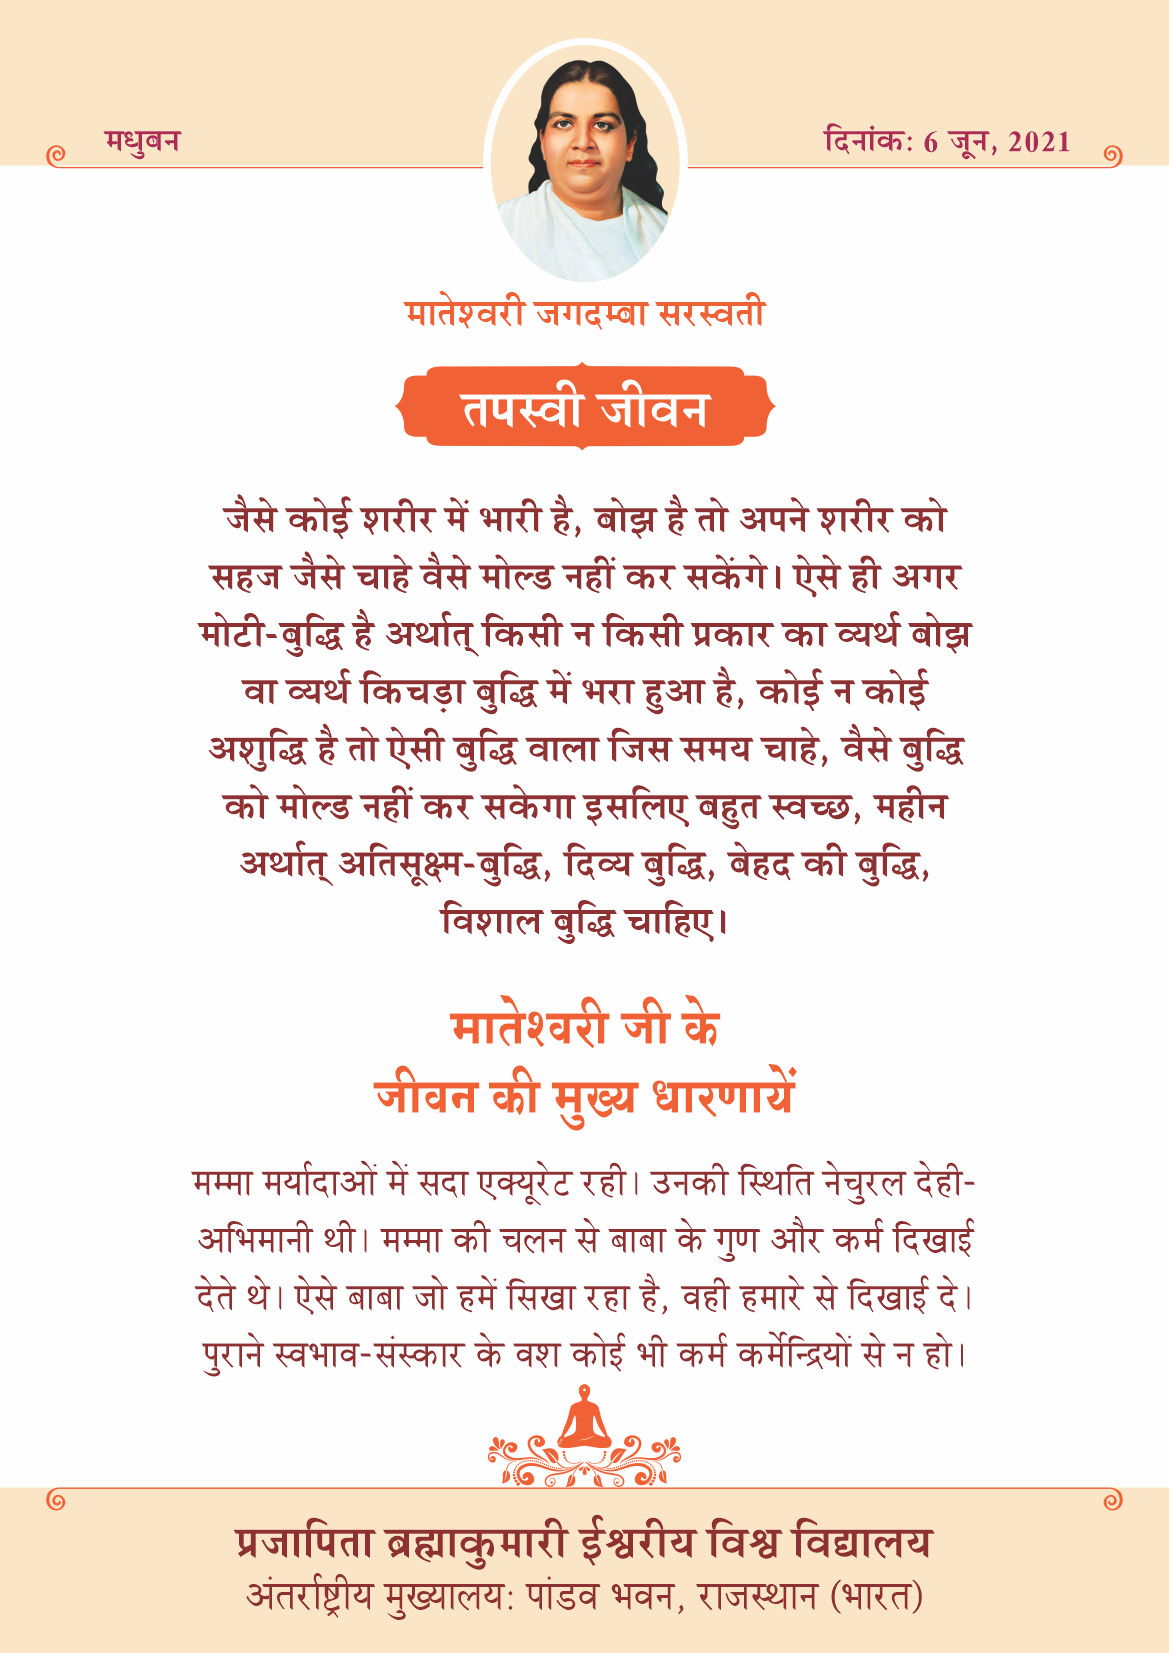 मधुबन
दिनांक: 6 जून, 2021
मातेश्वरी जगदम्बा सरस्वती
तपस्वी जीवन
जैसे कोई शरीर में भारी है, बोझ है तो अपने शरीर को
सहज जैसे चाहे वैसे मोल्ड नहीं कर सकेंगे। ऐसे ही अगर
मोटी-बुद्धि है अर्थात् किसी न किसी प्रकार का व्यर्थ बोझ
वा व्यर्थ किचड़ा बुद्धि में भरा हुआ है, कोई न कोई
अशुद्धि है तो ऐसी बुद्धि वाला जिस समय चाहे, वैसे बुद्धि
को मोल्ड नहीं कर सकेगा इसलिए बहुत स्वच्छ, महीन
अर्थात् अतिसूक्ष्म-बुद्धि, दिव्य बुद्धि, बेहद की बुद्धि,
विशाल बुद्धि चाहिए।
मातेश्वरी जी के
जीवन की मुख्य धारणायें
मम्मा मर्यादाओं में सदा एक्यूरेट रही। उनकी स्थिति नेचुरल देही-
अभिमानी थी। मम्मा की चलन से बाबा के गुण और कर्म दिखाई
देते थे। ऐसे बाबा जो हमें सिखा रहा है, वही हमारे से दिखाई दे।
पुराने स्वभाव-संस्कार के वश कोई भी कर्म कर्मेन्द्रियों से न हो।
प्रजापिता ब्रह्माकुमारी ईश्वरीय विश्व विद्यालय
अंतर्राष्ट्रीय मुख्यालय: पांडव भवन, राजस्थान (भारत)